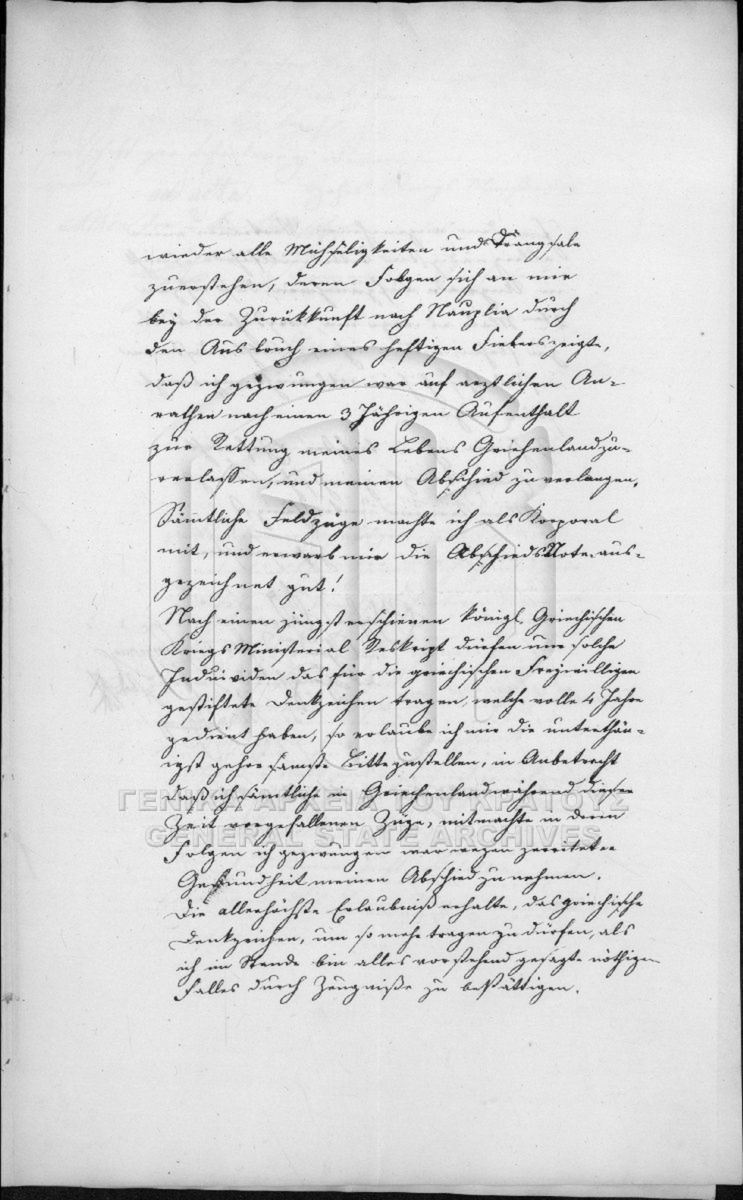 wieder alle Mühseligkeiten und Drangsale
zuerstehen, deren Folgen sich an mir
bey der Zurükkunft nach Nauplia durch
den Ausbruch eines heftigen Fiebers zeigte,
daß ich gezwungen war auf arztlichen An-
rathen nach einen 3 Jährigen Aufenthalt
zur Rettung meines Lebens Griechenland zu-
verlassen, und meinen Abschied zu verlangen.
Sämtliche Feldzüge machte ich als Korporal
mit, und erwarb mir die Abschieds Note: aus-
gezeichnet gut!
Nach einen jüngst erschienen königl. Griechischen
Kriegs Ministerial Reskript dürfen nur solche
Individen das für die griechischen Freywilligen
gestiftete Denkzeichen tragen, welche volle 4 Jahre
gedient haben, so erlaube ich mir die unterthän-
igst gehorsamste Bitte zustellen, in Anbetracht
daß ich sämtliche in Griechenland während dieser
Zeit vorgefallenen Züge, mitmachte in deren
Folgen ich gezwungen war wegen zerritteter
Gesundheit meinen Abschied zu nehmen.
Die allerhöchste Erlaubniß erhalte, das griechische
Denkzeichen, um so mehr tragen zu dürfen, als
ich im Stande bin alles vorstehend gesagte nöthigen
Falles durch Zeugniße zu bestättigen.
ΓΕΝΙΚΑ ΑΡΧΕΙΑ ΤΟΥ ΚΡΑΤΟΥΣ
GENERAL STATE ARCHIVES